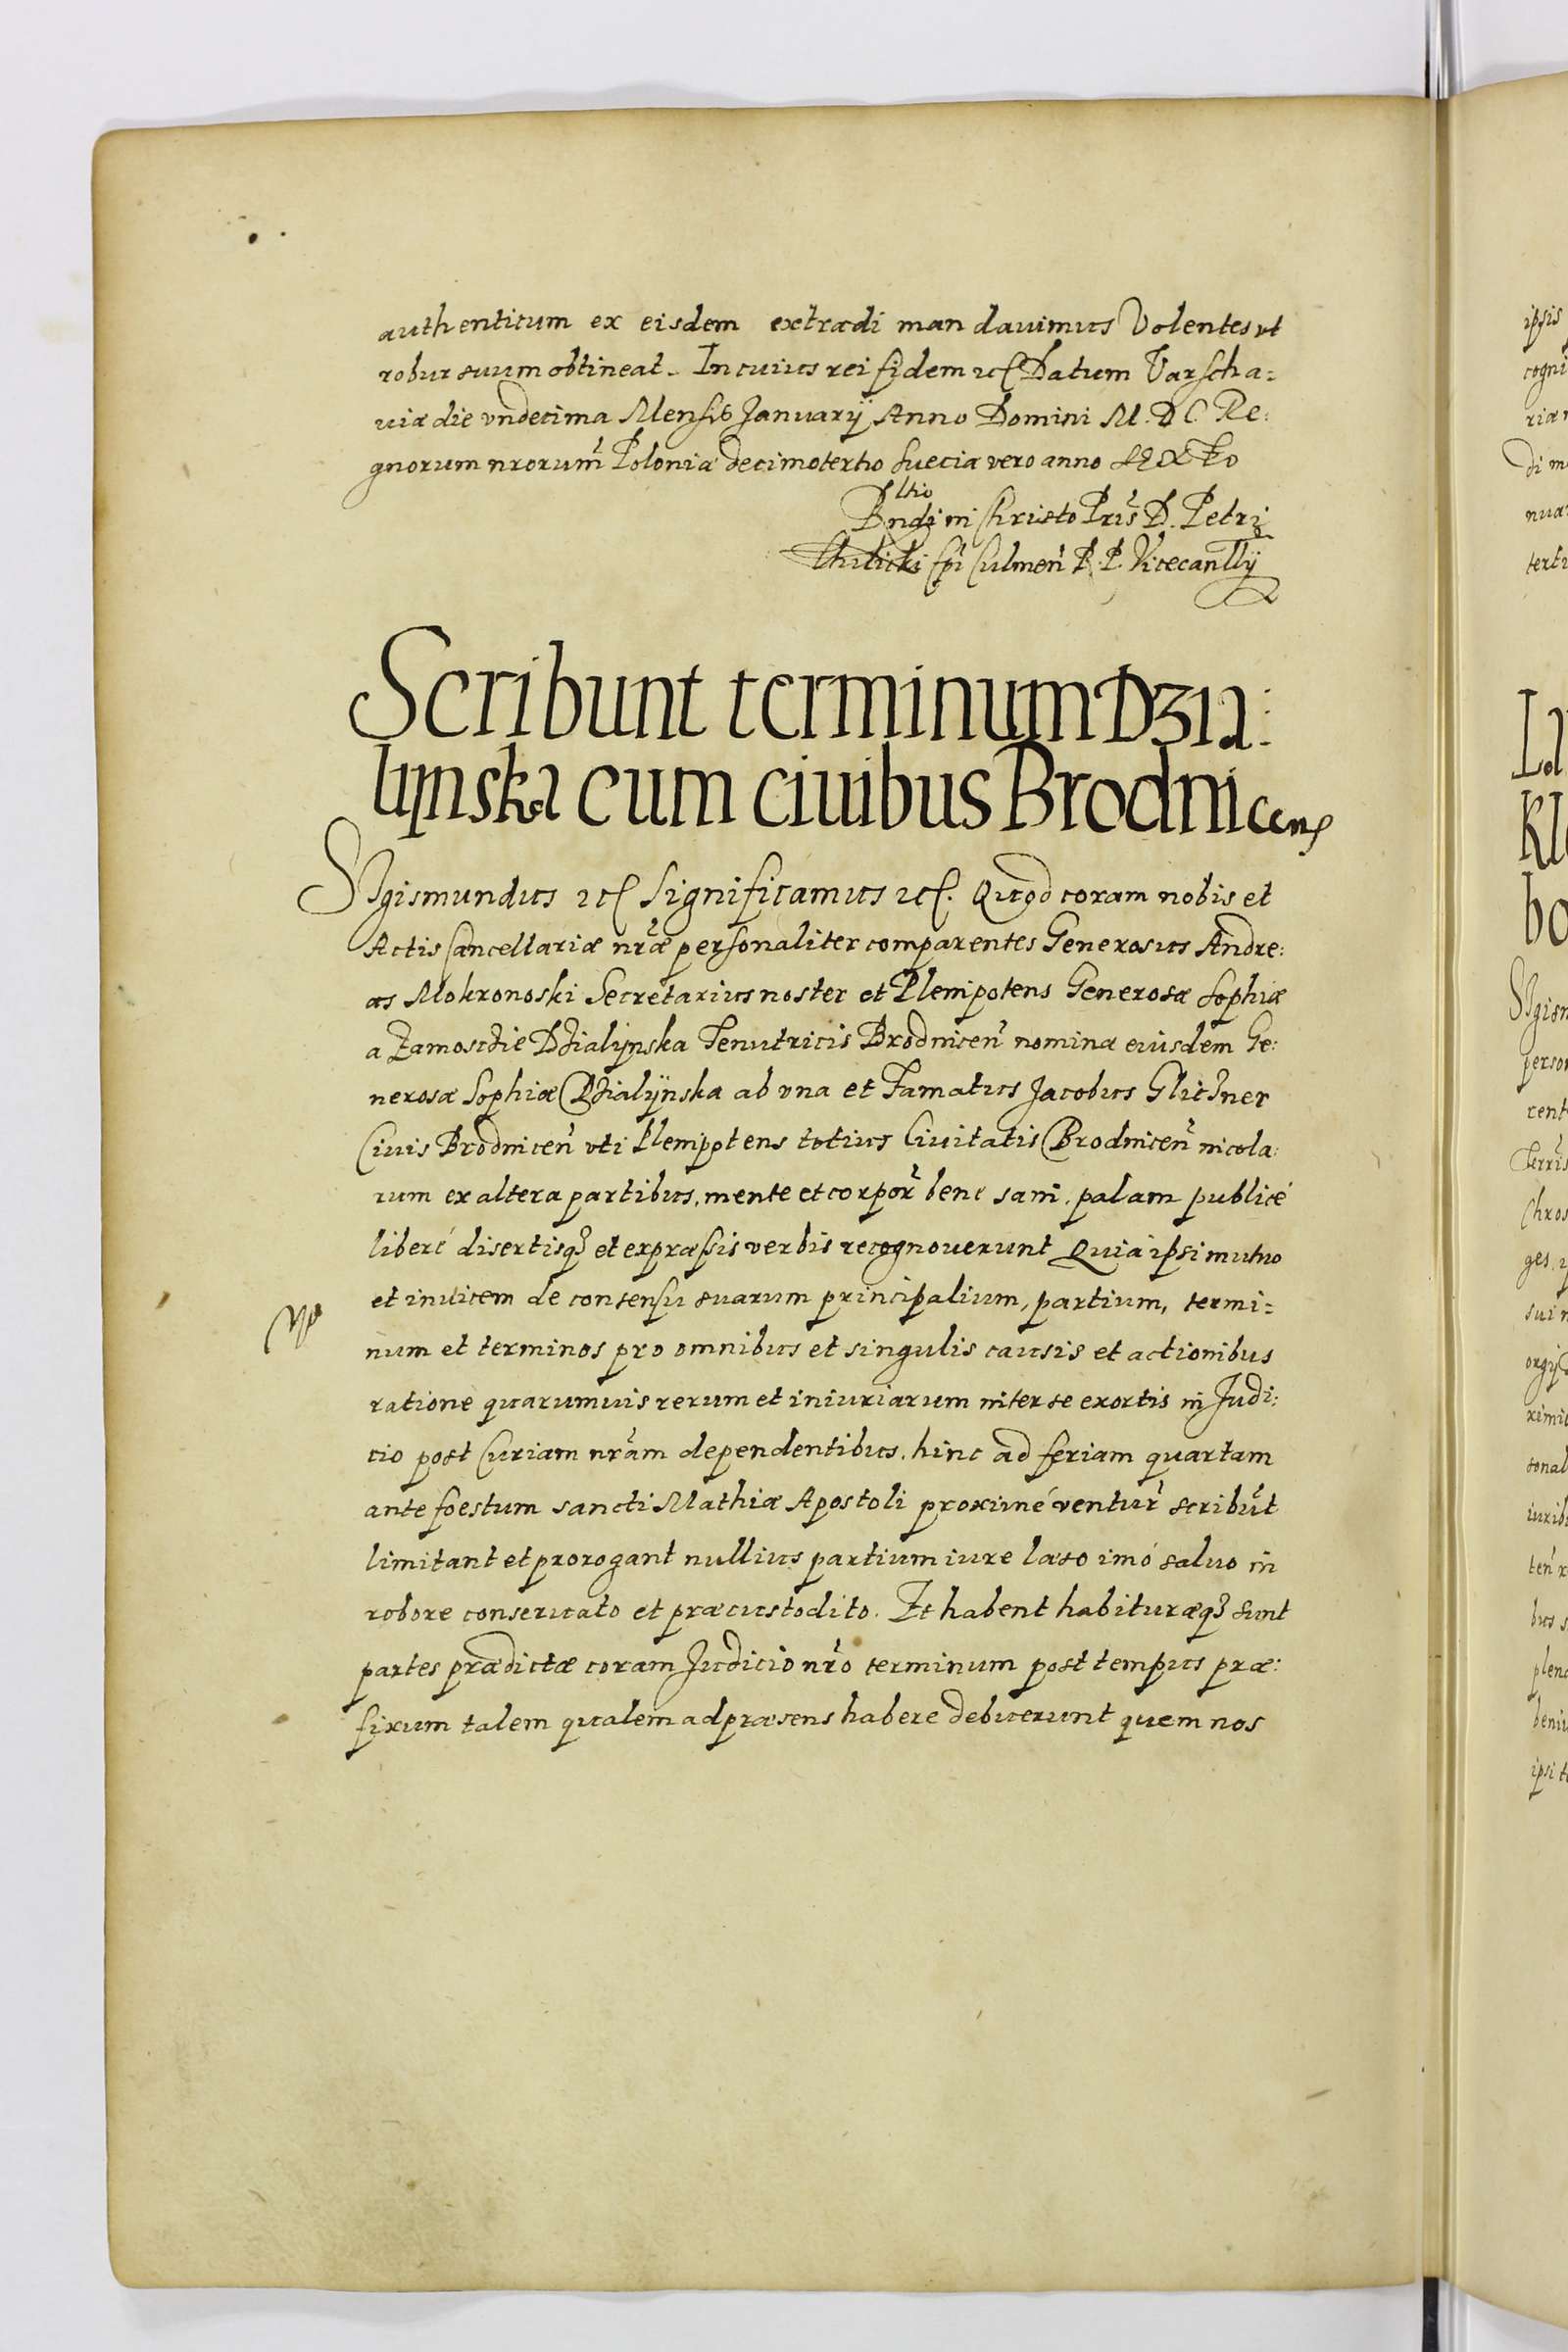 authenticum ex eisdem extradi mandauimus Volentes vt
robur suum obtineat. In cuius rei fidem etc Datum Varscha=
uiæ die vndecima Mensis Januarij Anno Domini M.D C. Re:
gnorum nrorum Poloniæ decimotertio Sueciæ vero anno sexto
in Christo Pris D. Petri
Culmen P. P. Vicecanllij
Scribunt terminum Dzia:
lijnska cum ciuibus Brodnicens
Sigismundus etc Significamus etc. Quod coram nobis et
Actis Cancellariæ nræ personaliter comparentes Generosus Andre:
as Mokronoski Secretarius noster et Plenipotens Generosæ Sophiæ
a Zamosczie Dzialijnska Tenutricis Brodnicen nomine eiusdem Ge:
nerosæ Sophiæ Dzialijnska ab vna et Famatus Jacobus Gliczner
Ciuis Brodnicen vti Plenipotens totius Ciuitatis Brodnicen incola:
rum ex altera partibus, mente et corpor bene sani, palam publicé
liberé disertisq3 et expræssis verbis recognouerunt Quia ipsi mutuo
et inuicem de consensu suarum principalium, partium, termi=
num et terminos pro omnibus et singulis causis et actionibus
ratione quarumuis rerum et iniuriarum inter se exortis in Judi:
cio post Curiam nram dependentibus, hinc ad feriam quartam
ante foestum sancti Mathiæ Apostoli proximé ventur scribut
limitant et prorogant nullius partium iure læso imó saluo in
robore conseruato et præcustodito. Et habent habituræq3 sunt
partes prædictæ coram Judicio nro terminum post tempus præ:
fixum talem qualem ad præsens habere debuerunt quem nos
ipsis
cogni
tert
Sigis
perso
cent
ges
sui
plen
ipsi